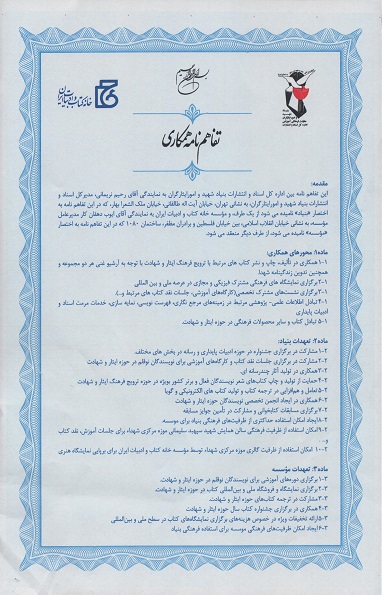 خانه کتاب و ادبیات ایران
تفاهم نامه همکاری
مقدمه:
این تفاهم نامه بین اداره کل اسناد و انتشارات بنیاد شهید و امور ایثارگران به نمایندگی آقای رحیم نریمانی، مدیرکل اسناد و
انتشارات بنیاد شهید و امور ایثارگران، به نشانی تهران، خیابان آیت اله طالقانی، خیابان ملک الشعرا بهار، که در این تفاهم نامه به
اختصار «بنیاد» نامیده می شود از یک طرف و مؤسسه خانه کتاب و ادبیات ایران به نمایندگی آقای ایوب دهقان کار مدیرعامل
مؤسسه، به نشانی خیابان انقلاب اسلامی، بین خیابان فلسطین و برادران مظفر، ساختمان ۱۰۸۰ که در این تفاهم نامه به اختصار
«مؤسسه» نامیده می شود، از طرف دیگر منعقد می شود.
ماده۱: محورهای همکاری:
۱-۱همکاری در تألیف، چاپ و نشر کتاب های مرتبط با ترویج فرهنگ ایثار و شهادت با توجه به آرشیو غنی هر دو مجموعه و
همچنین تدوین زندگینامه شهدا
۲-۱برگزاری نمایشگاه های فرهنگی مشترک فیزیکی و مجازی در عرصه ملی و بین المللی
۳-۱برگزاری نشست‌های مشترک تخصصی(کارگاه‌های آموزشی، جلسات نقد کتاب های مرتبط و...).
۴-۱تبادل اطلاعات علمی- پژوهشی مرتبط در زمینه‌های مرجع نگاری، فهرست نویسی، نمایه سازی، خدمات مرمت اسناد و
ادبیات پایداری
۵-۱ تبادل کتاب و سایر محصولات فرهنگی در حوزه ایثار و شهادت.
ماده۲: تعهدات بنیاد:
۱-۲مشارکت در برگزاری جشنواره در حوزه ادبیات پایداری و رسانه در بخش های مختلف.
۲-۲مشارکت در برگزاری جلسات نقد کتاب و کارگاه‌های آموزشی برای نویسندگان نوقلم در حوزه ایثار و شهادت
۳-۲همکاری در تولید آثار چندرسانه ای.
۴-۲حمایت از تولید و چاپ کتاب‌های شعر نویسندگان فعال و برتر کشور بویژه در حوزه ترویج فرهنگ ایثار و شهادت
۵-۲تعامل و هم‌افزایی در ترجمه کتاب و تولید کتاب های الکترونیکی و گویا
۶-۲همکاری در ایجاد انجمن تخصصی نویسندگان حوزه ایثار و شهادت
۷-۲برگزاری مسابقات کتابخوانی و مشارکت در تأمین جوایز مسابقه
۸-۲ایجاد امکان استفاده حداکثری از ظرفیت‌های فرهنگی بنیاد برای موسسه.
۹-۲امکان استفاده از ظرفیت فرهنگی سالن همایش شهید سپهبد سلیمانی موزه مرکزی شهدا، برای جلسات آموزش، نقد کتاب
و...
۱۰-۲ امکان استفاده از ظرفیت گالری موزه مرکزی شهدا، توسط مؤسسه خانه کتاب و ادبیات ایران برای برپایی نمایشگاه هنری
ماده ۳: تعهدات مؤسسه
۱-۳برگزاری دوره‌های آموزشی برای نویسندگان نوقلم در حوزه ایثار و شهادت.
۲-۳برگزاری نمایشگاه و فروشگاه ملی و بین‌المللی کتاب در حوزه ایثار و شهادت.
۳-۳مشارکت در ترجمه کتاب‌های حوزه ایثار و شهادت.
۴-۳همکاری در برگزاری جشنواره کتاب سال حوزه ایثار و شهادت
۵-۳ارائه تخفیفات ویژه در خصوص هزینه‌های برگزاری نمایشگاه‌های کتاب در سطح ملی و بین‌المللی
۶-۳ایجاد امکان ظرفیت‌های فرهنگی موسسه برای استفاده فرهنگی بنیاد: